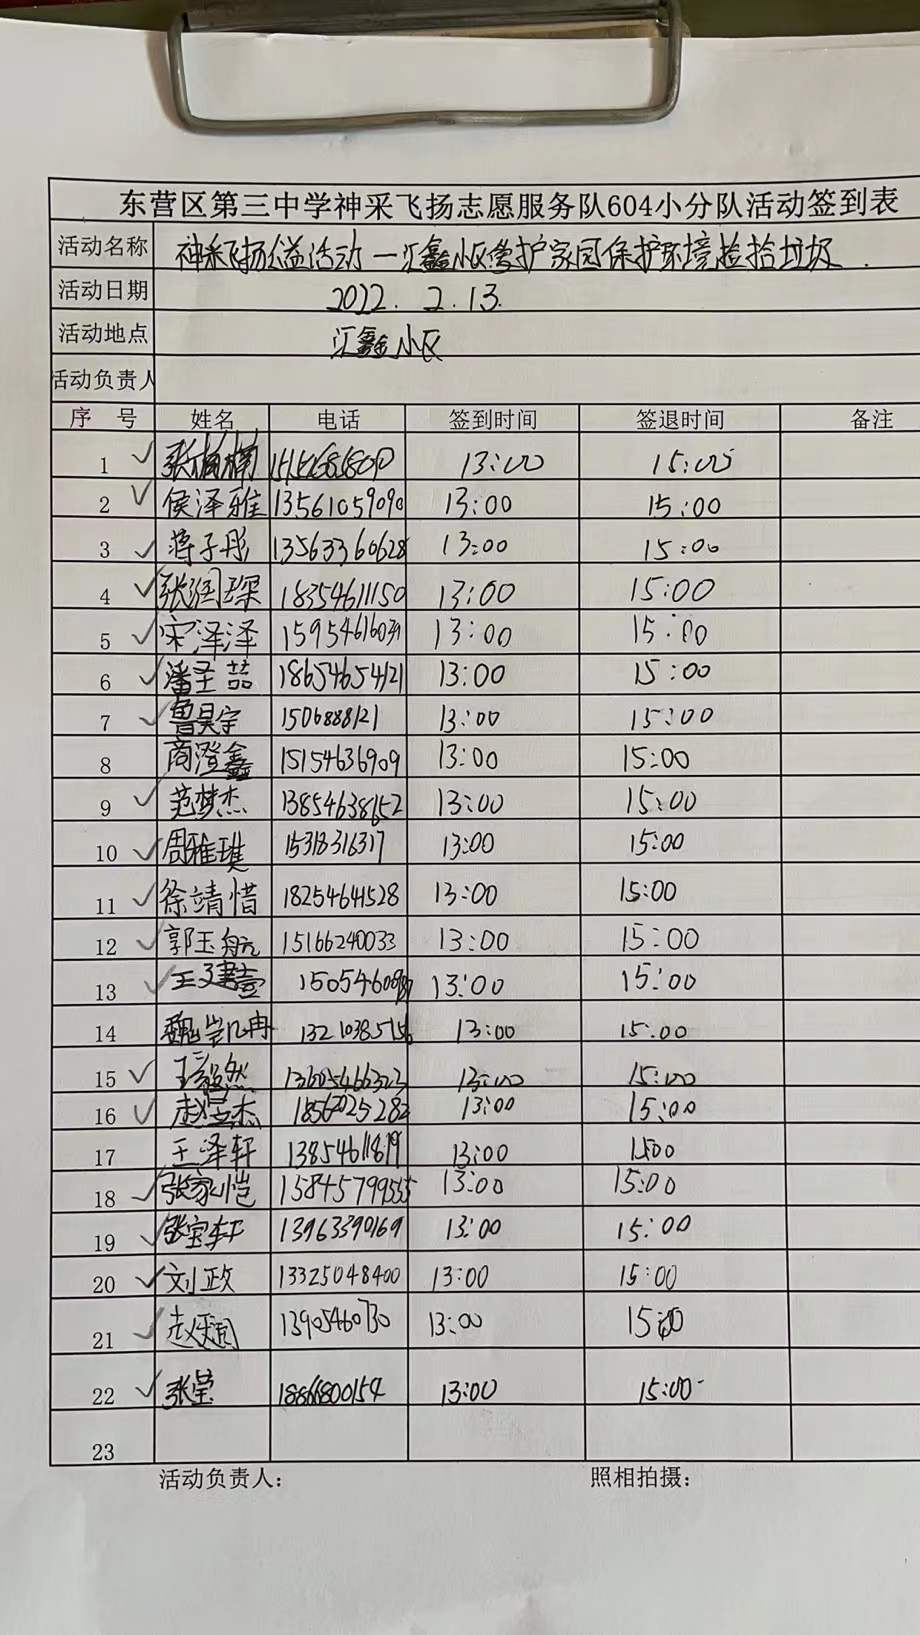 东营区第三中学神采飞扬志愿服务队604小分队活动签到表
活动名称 神采飞扬公益活动—汇鑫小区爱护家园保护环境捡拾垃圾.
活动日期 2022. 2.13.
活动地点 汇鑫小区
活动负责人
序 号 姓名 电话 签到时间 签退时间 备注
1 13:00 15:00
2 侯泽雅 13561059090 13:00 15:00
3 蒋子彤 13563360628 13:00 15:00
4 张润琛 18354611150 13:00 15:00
5 宋泽泽 13:00 15:00
6 潘圣喆 18654654121 13:00 15:00
7 鲁昊宇 1506888121 13:00 15:00
8 商澄鑫 15154636909 13:00 15:00
9 范梦杰 13854638652 13:00 15:00
10 周雅琪 15318316317 13:00 15:00
11 徐靖惜 18254641528 13:00 15:00
12 郭玉航 15166240033 13:00 15:00
13 王建壹 13:00 15:00
14 13210385156 13:00 15:00
15 13605466323 13:00 15:00
16 13:00 15:00
17 王泽轩 13854611819 13:00 1500
18 张家恺 15845799555 13:00 15:00
19 张宝轩 13963390169 13:00 15:00
20 刘政 13325048400 13:00 15:00
21 13905460730 13:00 15:00
22 张莹 18866800154 13:00 15:00
23
活动负责人: 照相拍摄: